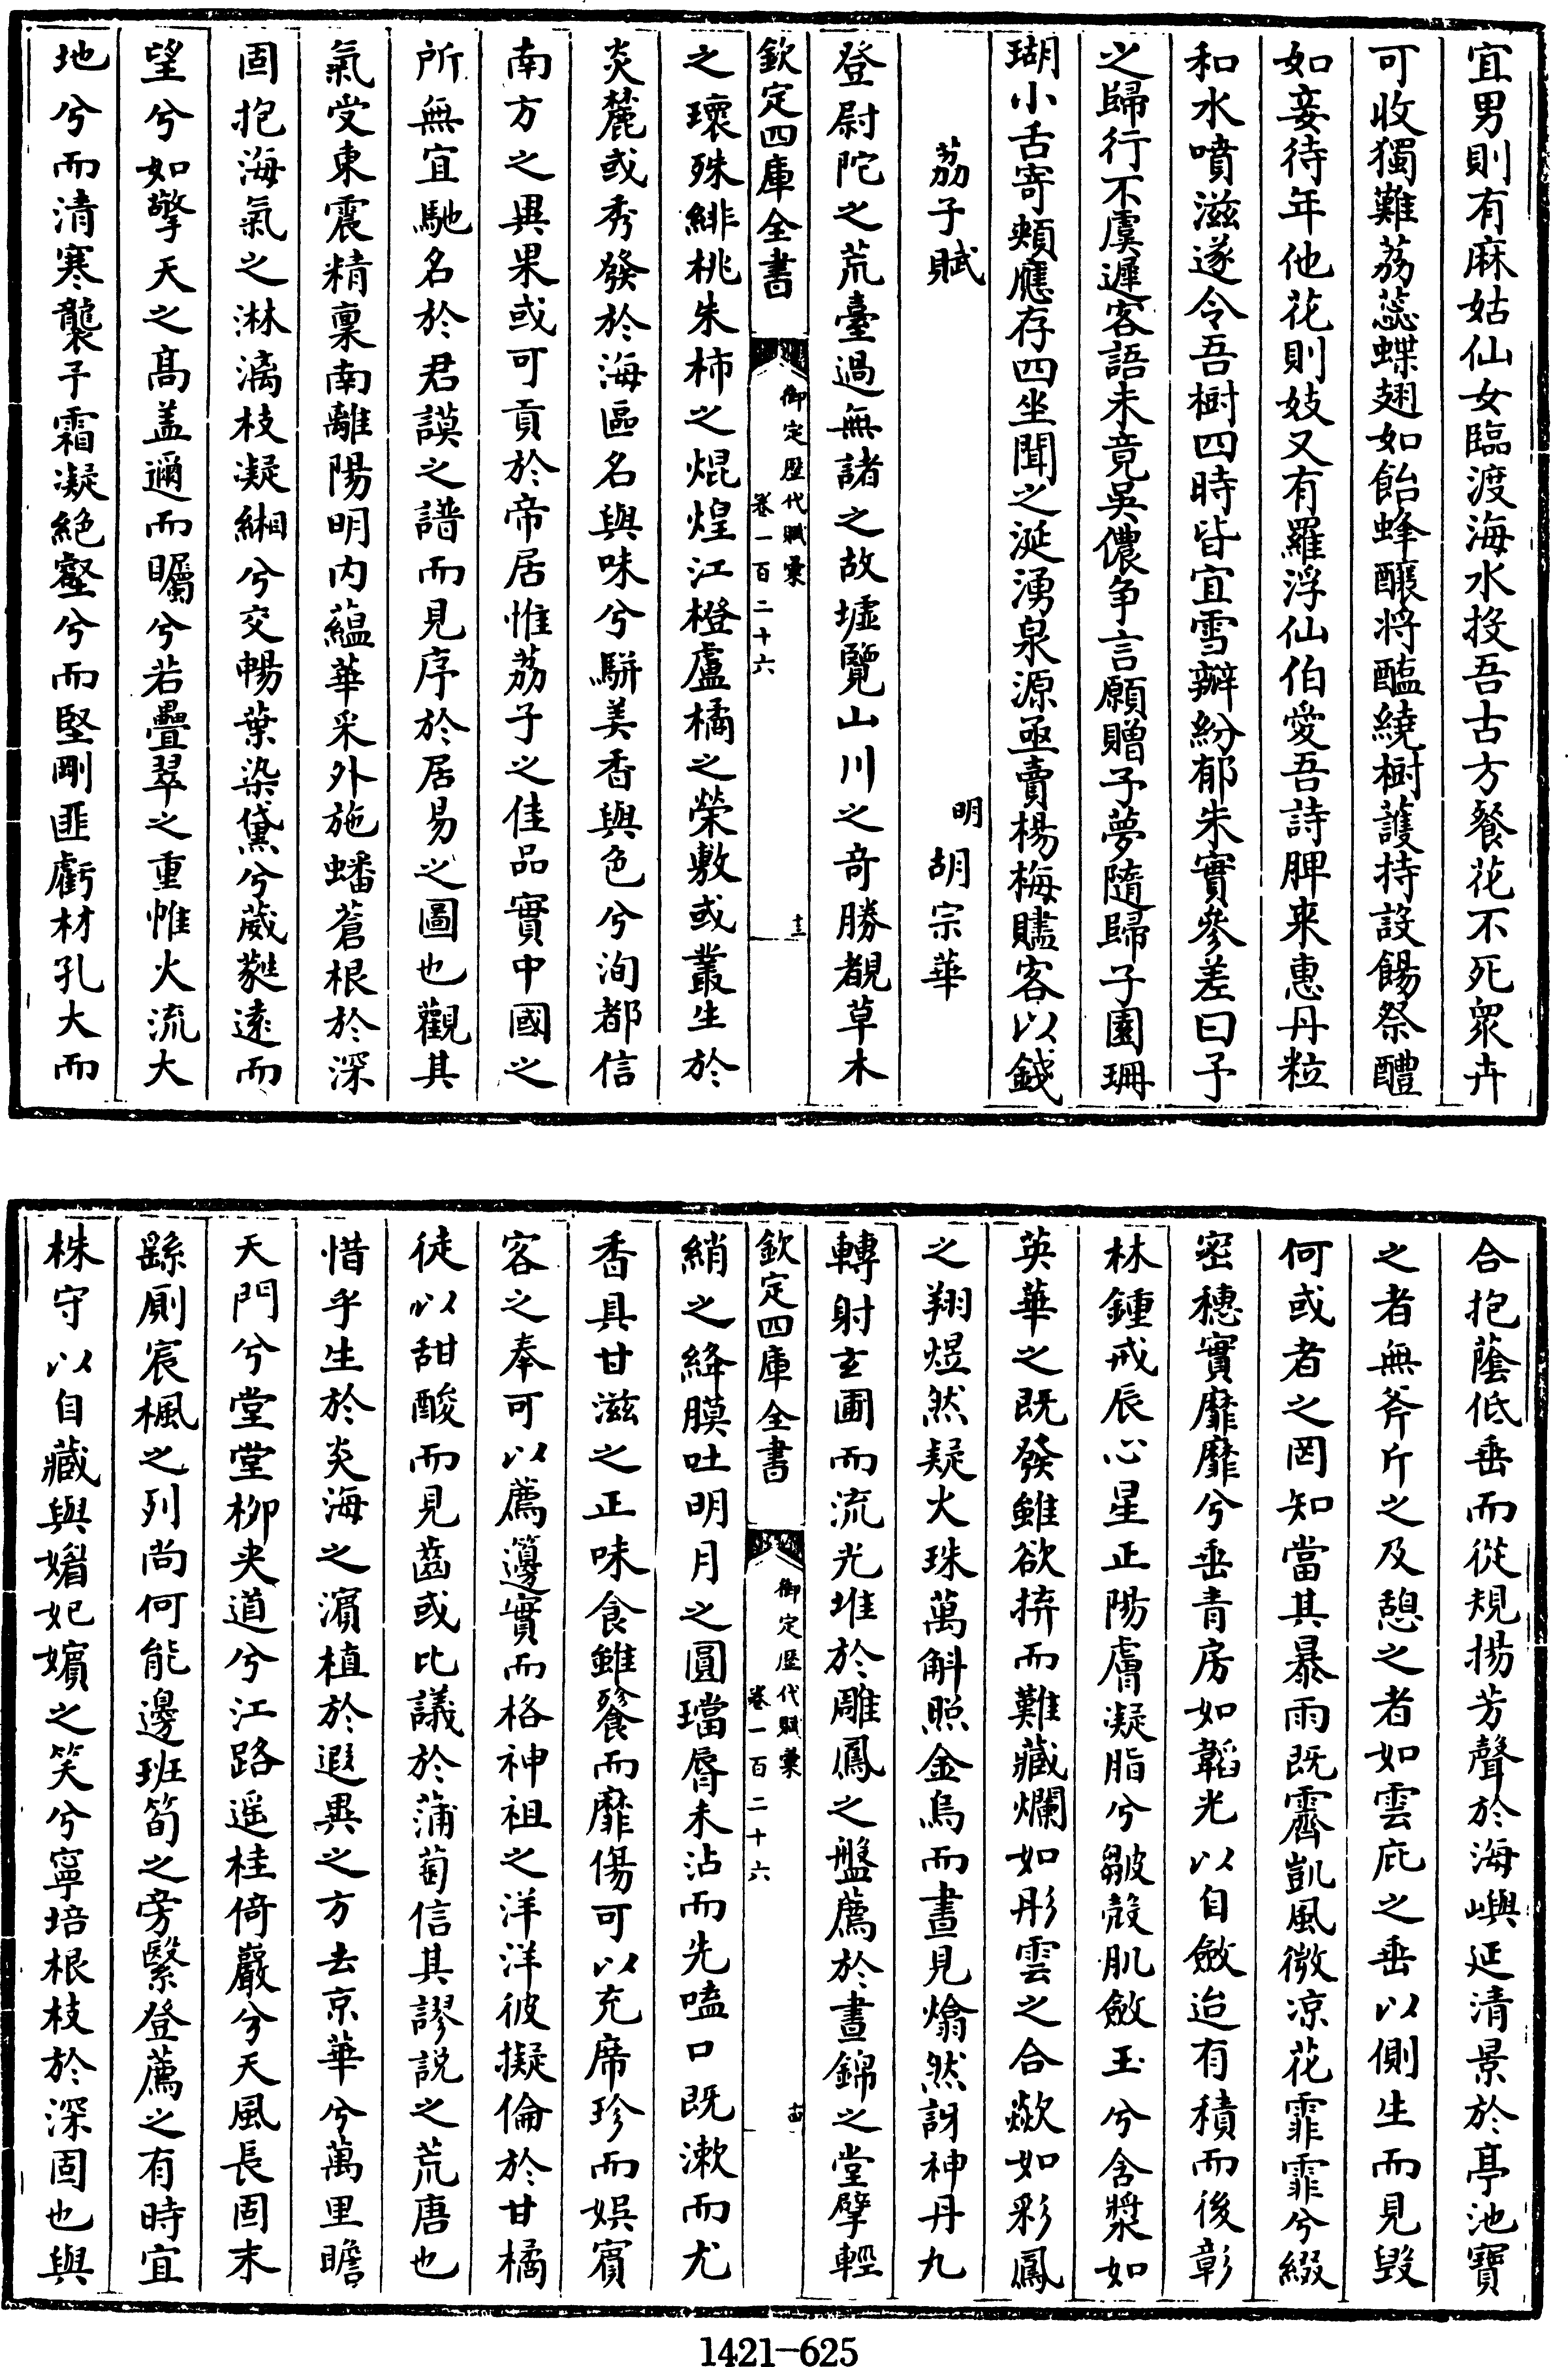 宜男則有麻姑仙女臨渡海水投吾古方餐花不死眾卉
可收獨難荔蕊蝶翅如飴蜂釀將醖繞樹護持設餳祭醴
如妾待年他花則妓又有羅浮仙伯愛吾詩脾来惠丹粒
和水噴滋遂令吾樹四時皆宜雪辧紛郁朱實參差曰予
之歸行不虞遲客語未竟吳儂争言願贈子夢隨歸子園珊
瑚小舌寄頰應存四坐聞之涎湧泉源亟賣楊梅贐客以錢
荔子賦
明 胡宗華
登尉陀之荒臺過無諸之故墟覽山川之竒勝覩草木
欽定四庫全書
御定歴代賦彙
卷一百二十六
十三
之瓌殊緋桃朱柿之焜煌江橙盧橘之榮敷或叢生於
炎麓或秀發於海區名與味兮駢美香與色兮洵都信
南方之異果或可貢於帝居惟荔子之佳品實中國之
所無宜馳名於君謨之譜而見序於居易之圖也觀其
氣受東震精稟南離陽明内藴華采外施蟠蒼根於深
固抱海氣之淋漓枝凝緗兮交暢葉染黛兮葳蕤遠而
望兮如擎天之髙盖邇而矚兮若疊翠之重帷火流大
地兮而清寒襲子霜凝絶壑兮而堅剛匪虧材孔大而
合抱蔭低垂而從規揚芳聲於海嶼延清景於亭池寶
之者無斧斤之及憩之者如雲庇之垂以側生而見毁
何或者之罔知當其暴雨既霽凱風微凉花霏霏兮綴
密穗實靡靡兮垂青房如韜光以自斂迨有積而後彰
林鍾戒辰心星正陽膚凝脂兮皺殻肌斂玉兮含漿如
英華之既發雖欲掩而難藏爛如彤雲之合歘如彩鳳
之翔煜然疑火珠萬斛照金烏而晝見熻然訝神丹九
轉射𤣥圃而流光堆於雕鳳之盤薦於晝錦之堂擘輕
欽定四庫全書
御定歴代賦彙
卷一百二十六
十四
綃之絳膜吐明月之圓璫脣未沾而先嗑口既漱而尤
香具甘滋之正味食雖飱而靡傷可以充席珍而娯賓
客之奉可以薦籩實而格神祖之洋洋彼擬倫於甘橘
徒以甜酸而見齒或比議於蒲萄信其謬說之荒唐也
惜乎生於炎海之濵植於遐異之方去京華兮萬里瞻
天門兮堂堂柳夾道兮江路遥桂倚巖兮天風長固末
繇厠宸楓之列尚何能邊班筍之旁繄登薦之有時宜
株守以自藏與媢妃嬪之笑兮寧培根枝於深固也與
1421-625